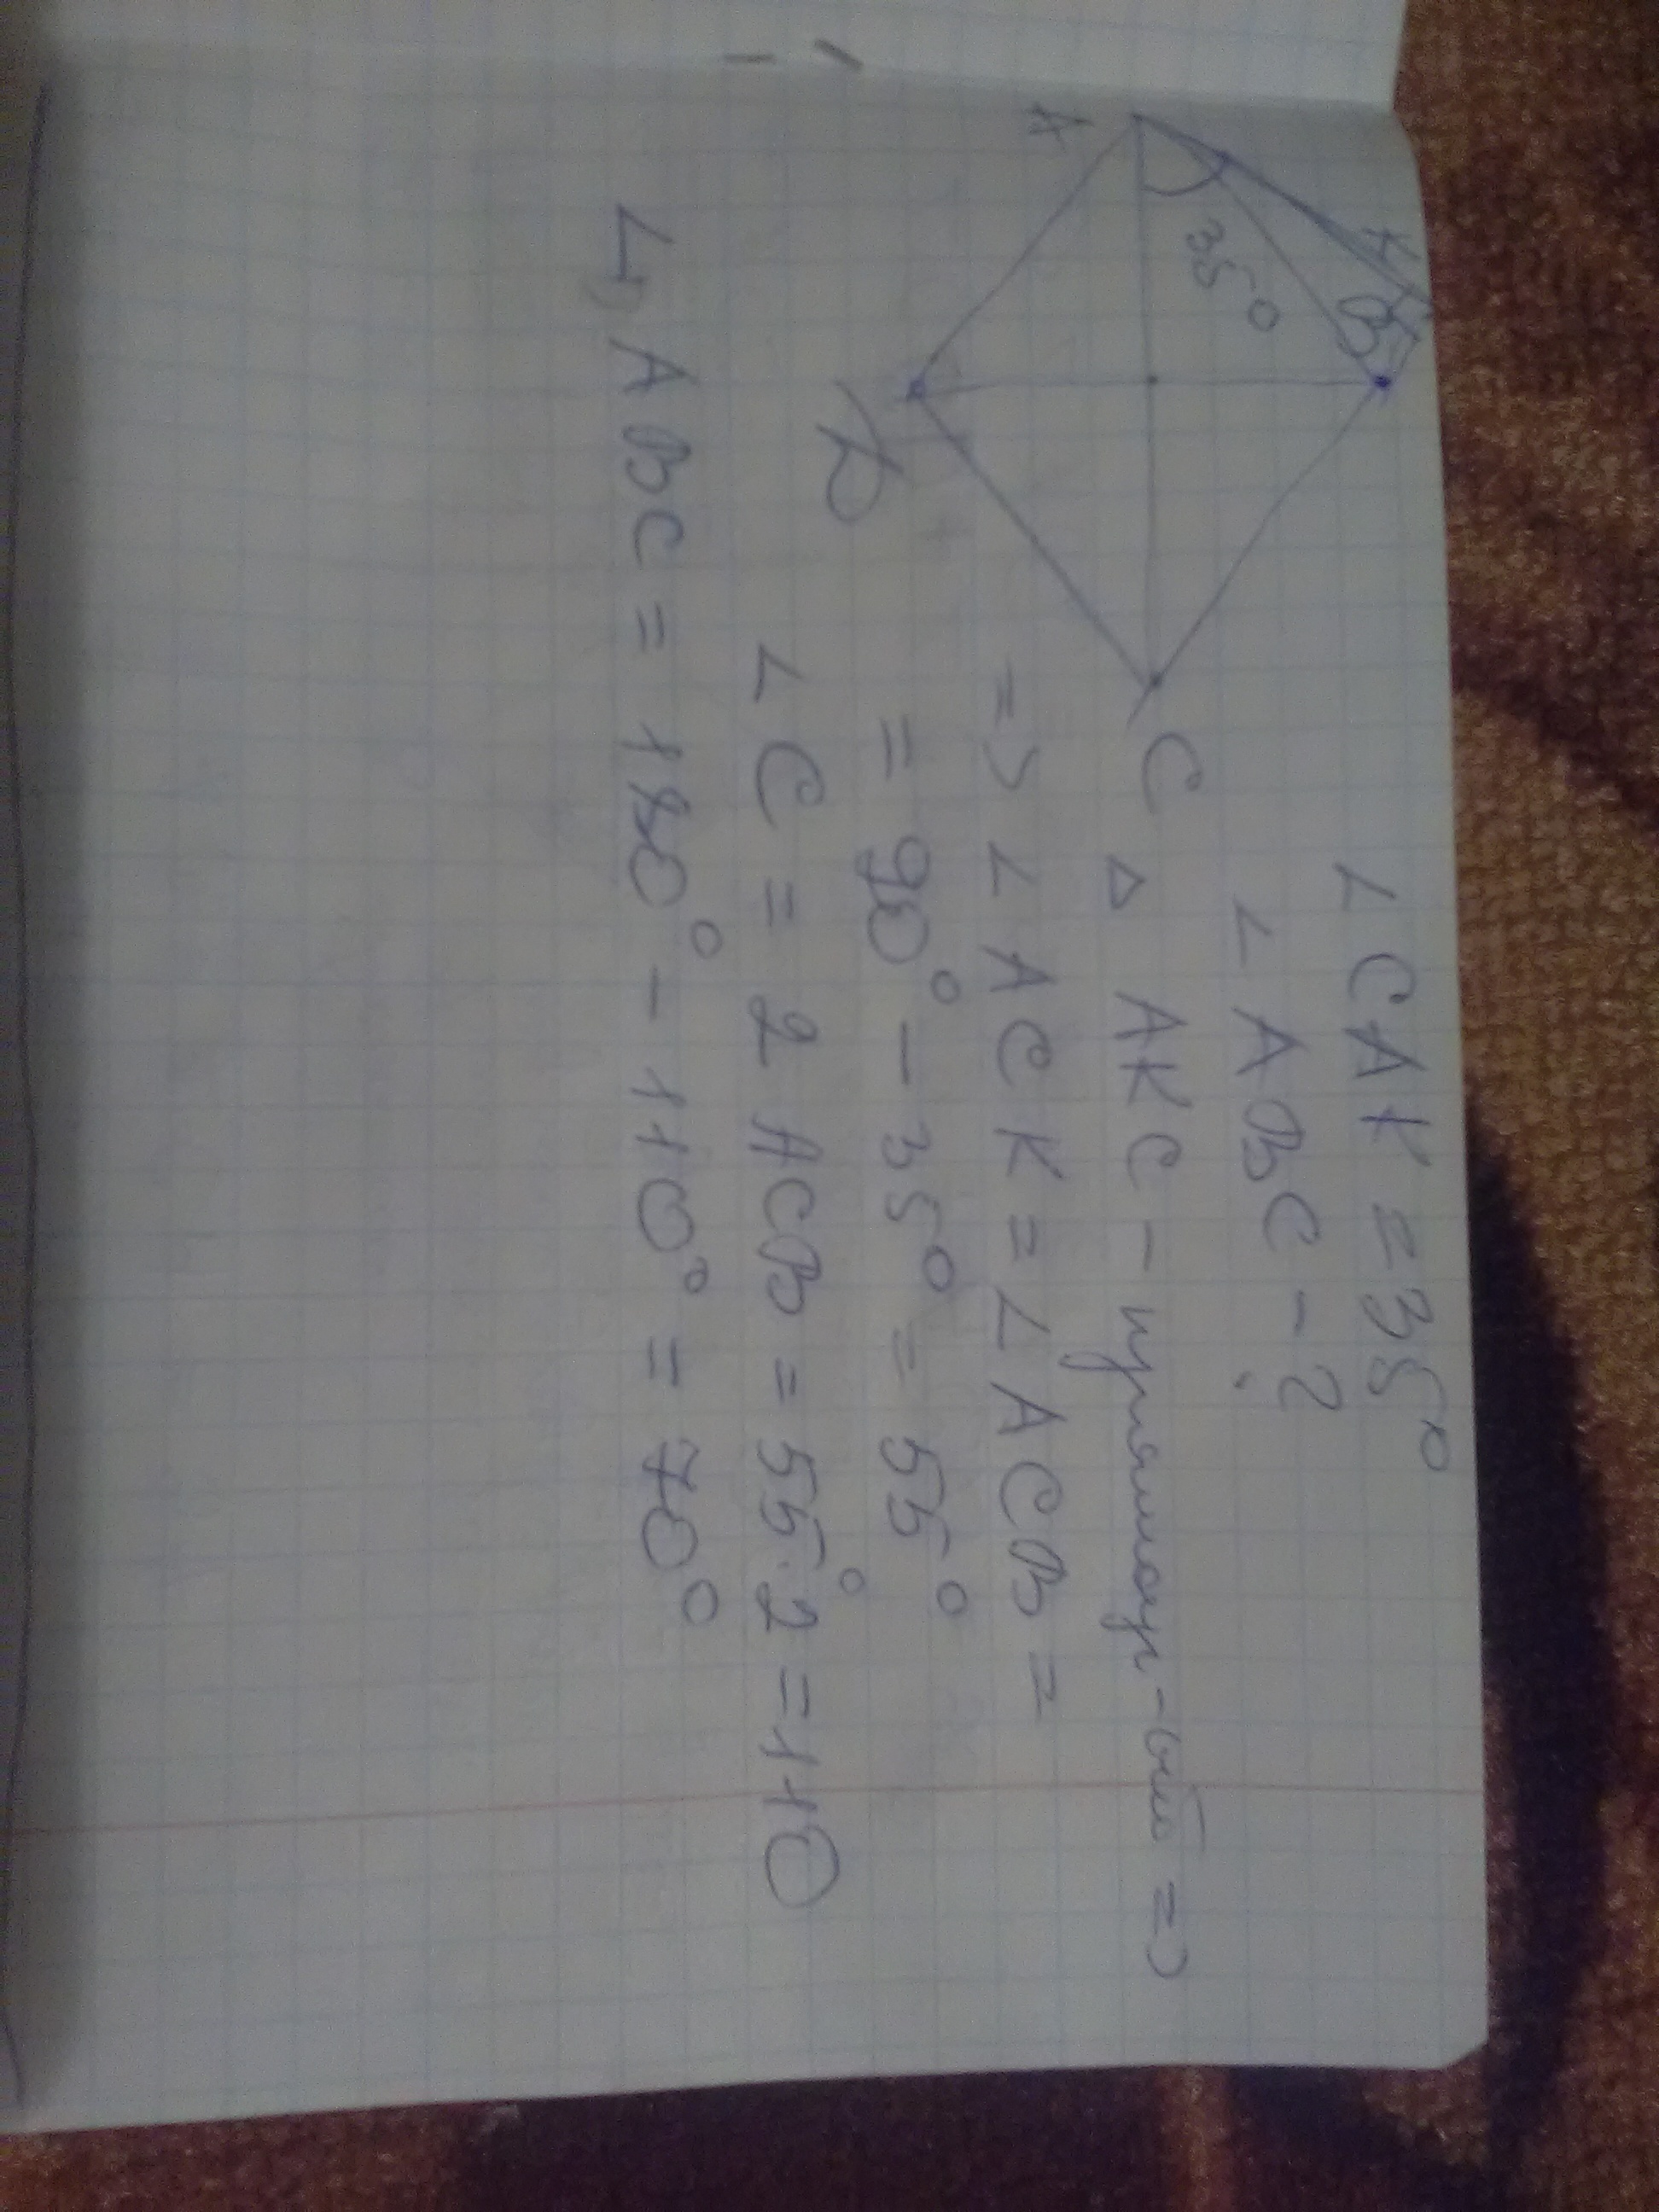 K
B
35°
A
C
D
∠ CAK = 35°
∠ ABC - ?
△ AKC - прямоуг-ый =>
=> ∠ ACK = ∠ ACB =
= 90° - 35° = 55°
∠ C = 2 ACB = 55°·2 = 110
∠ ABC = 180° - 110° = 70°